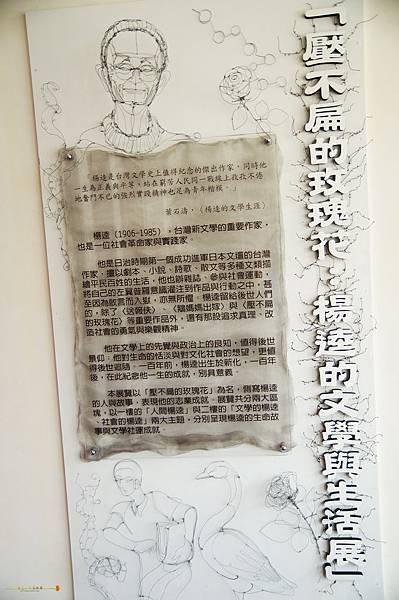 「壓不扁的玫瑰花：楊逵的文學與生活展」
楊逵是台灣文學史上值得紀念的傑出作家，同時他
一生為正義與平等，站在窮苦人民同一戰線上孜孜不倦
地奮鬥不已的強烈實踐精神也足為青年楷模。」
葉石濤，〈楊逵的文學生涯〉
楊逵（1906-1985），台灣新文學的重要作家，
也是一位社會革命家與實踐家。
他是日治時期第一個成功進軍日本文壇的台灣
作家，擅以劇本、小說、詩歌、散文等多種文類描
繪平民百姓的生活，他也辦雜誌、參與社會運動，
將自己的左翼普羅意識灌注到作品與行動之中，甚
至因為敢言而入獄，亦無所懼。楊逵留給後世人們
的，除了〈送報伕〉、〈鵝媽媽出嫁〉與〈壓不扁
的玫瑰花〉等重要作品外，還有那股追求真理、改
造社會的勇氣與樂觀精神。
他在文學上的先覺與政治上的良知，值得後世
景仰；他對生命的恬淡與對文化社會的想望，更值
得後世追隨。一百年前，楊逵出生於新化，一百年
後，在此紀念他一生的成就，別具意義。
本展覽以「壓不扁的玫瑰花」為名，側寫楊逵
的人與故事，表現他的志業成就。展覽共分兩大區
塊，以一樓的「人間楊逵」與二樓的「文學的楊逵
、社會的楊逵」兩大主題，分別呈現楊逵的生命故
事與文學社運成就。